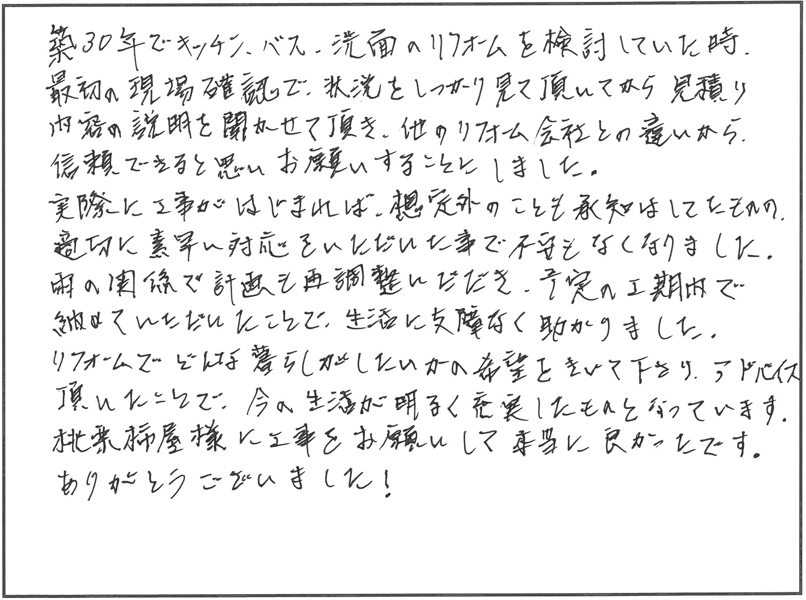 築30年でキッチン、バス、洗面のリフォームを検討していた時、
最初の現場確認で、状況をしっかり見て頂いてから見積り
内容の説明を聞かせて頂き、他のリフォーム会社との違いから、
信頼できると思いお願いすることにしました。
実際に工事がはじまれば、想定外のことも承知はしてたものの、
適切に素早い対応をいただいた事で不安もなくなりました。
雨の関係で計画も再調整いただき、予定の工期内で
納めていただいたことで、生活に支障なく助かりました。
リフォームでどんな暮らしがしたいかの希望をきいて下さり、アドバイス
頂いたことで、今の生活が明るく充実したものとなっています。
屋様に工事をお願いして本当に良かったです。
ありがとうございました!